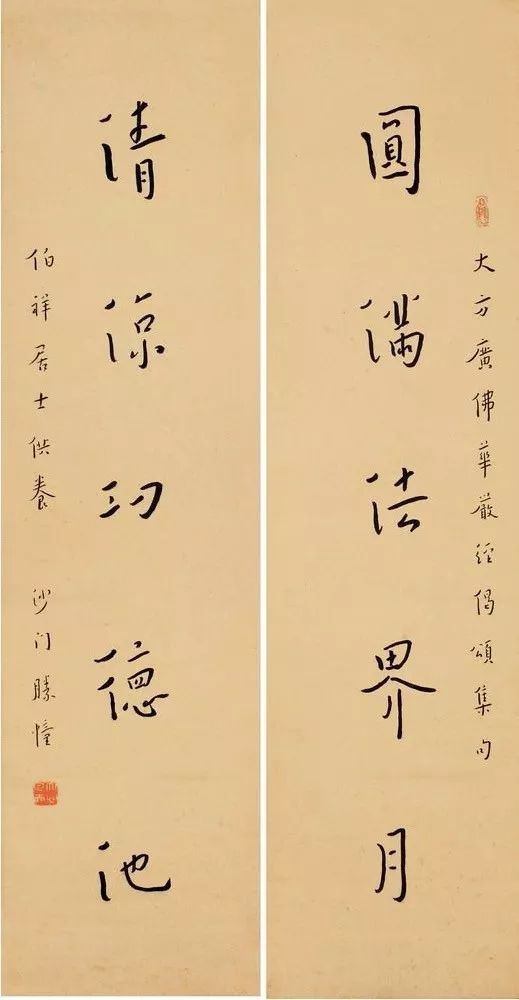 大方廣佛華嚴經偈頌集句
圓滿法界月
清涼功德池
伯祥居士供養 沙門勝幢